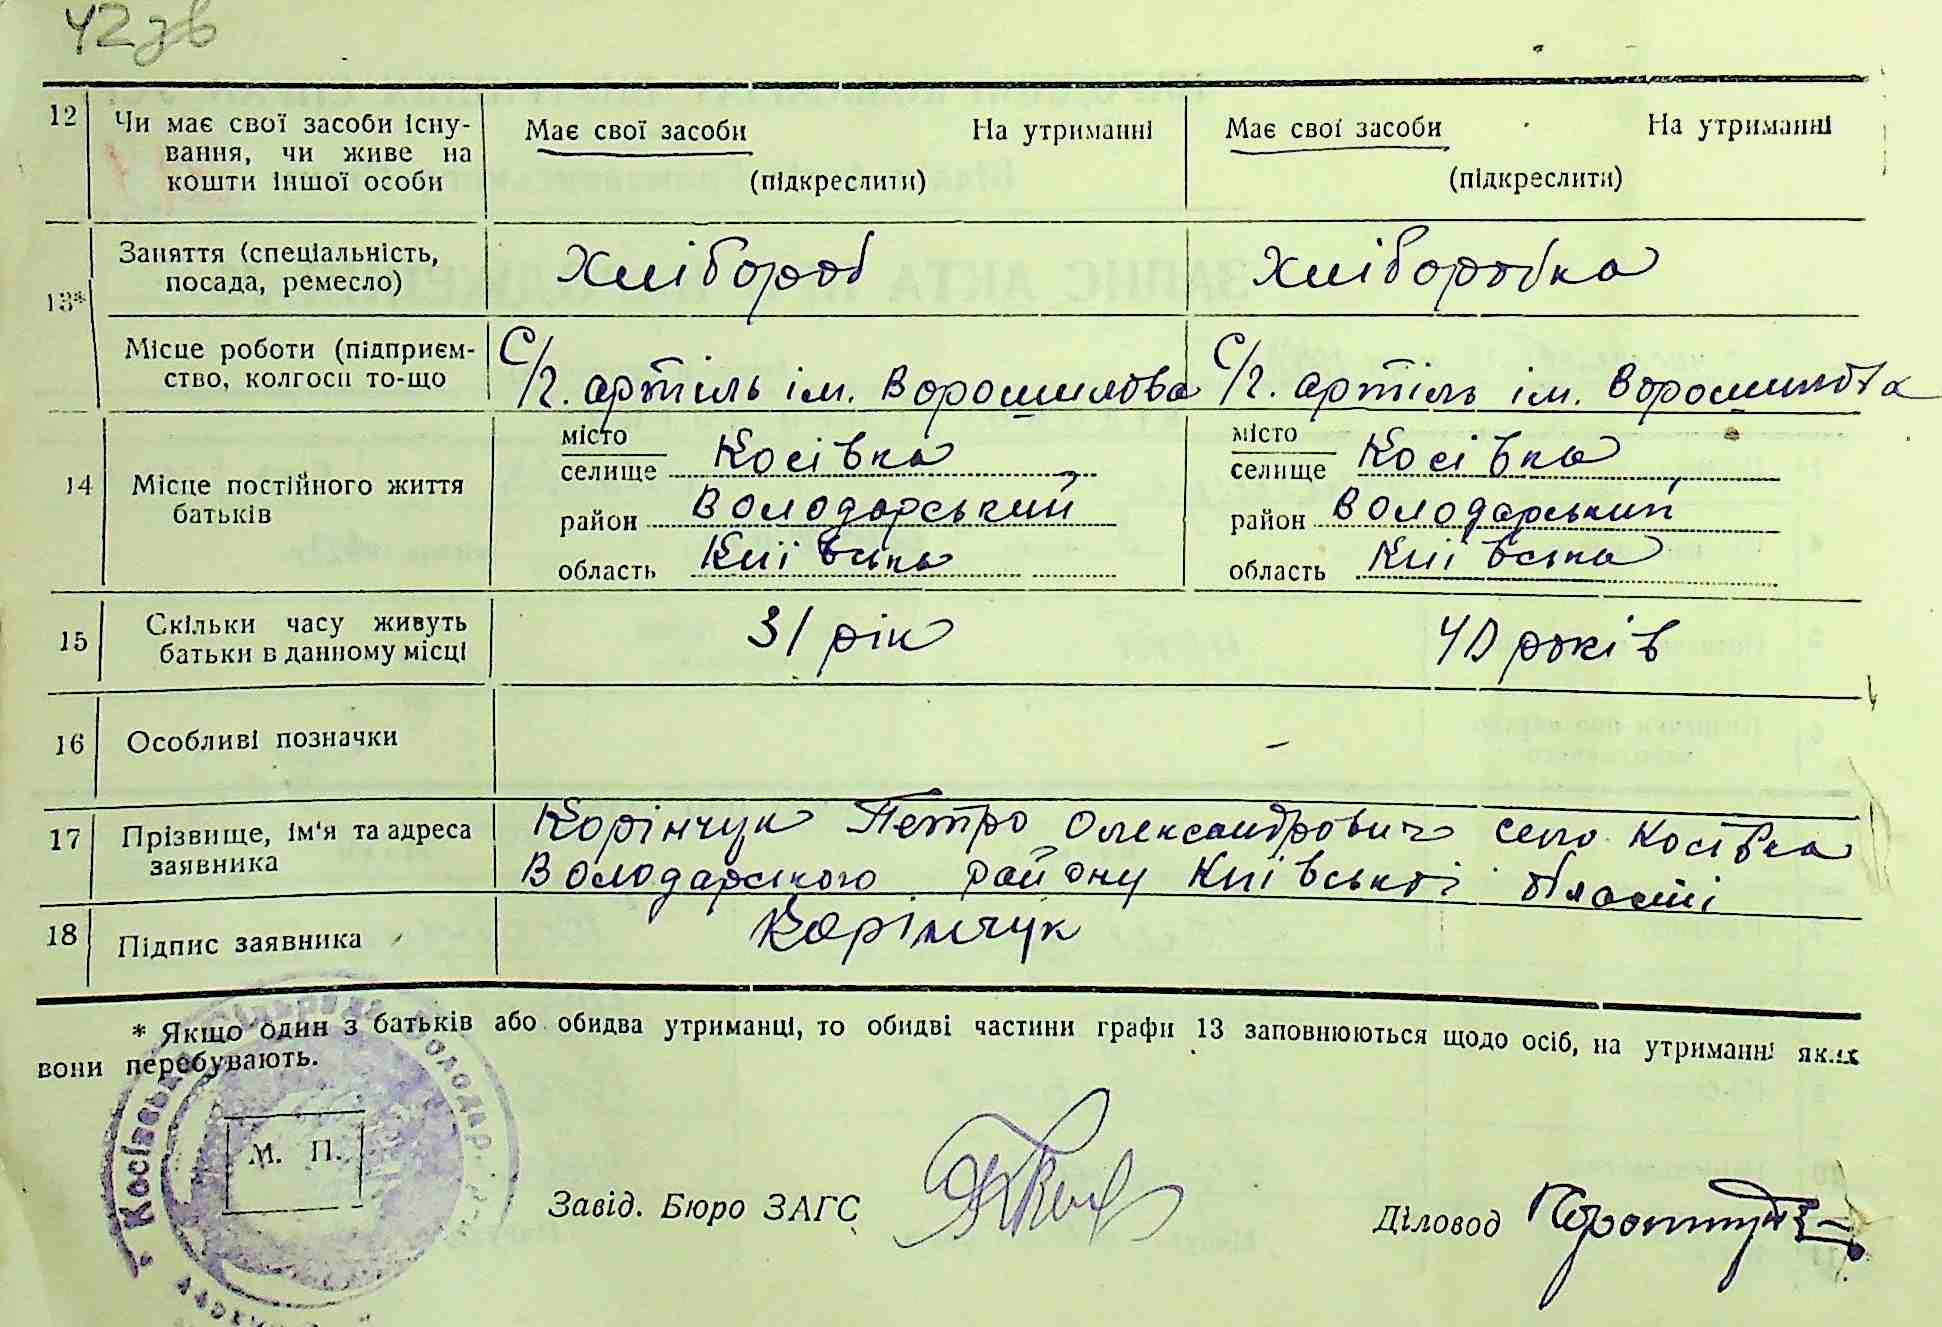 42 зв
12 Чи має свої засоби існу- Має свої засоби На утриманні Має свої засоби На утриманні
вання, чи живе на
кошти іншої особи (підкреслити) (підкреслити)
13* Заняття (спеціальність, Хлібороб Хліборобка
посада, ремесло)
Місце роботи (підприєм- С/г. артіль ім. Ворошилова С/г. артіль ім. Ворошилова
ство, колгосп то-що
14 Місце постійного життя місто місто
батьків селище Косівка селище Косівка
район Володарський район Володарський
область Київська область Київська
15 Скільки часу живуть 31 рік 40 років
батьки в данному місці
16 Особливі позначки -
17 Прізвище, ім'я та адреса Корінчук Петро Олександрович село Косівка
заявника Володарського району Київської області
18 Підпис заявника Корінчук
* Якщо один з батьків або обидва утриманці, то обидві частини графи 13 заповнюються щодо осіб, на утриманні яких
вони перебувають.
Косівська
М. П.
Завід. Бюро ЗАГС Діловод